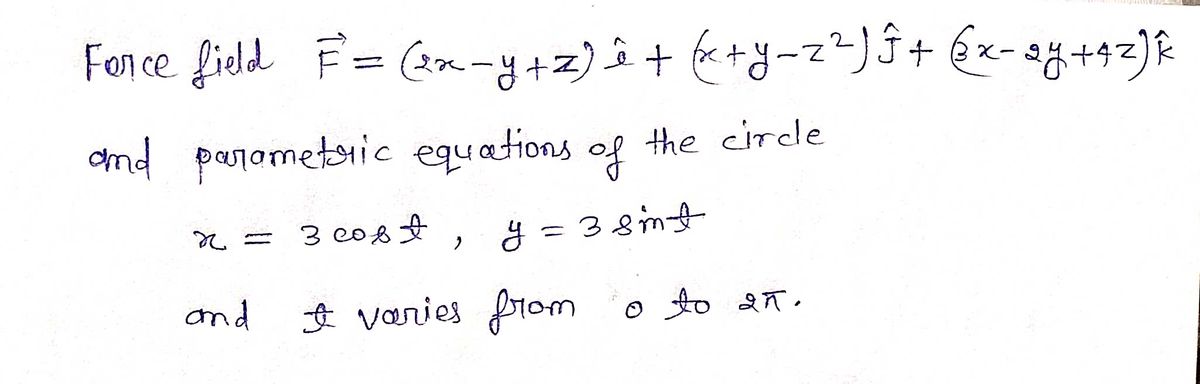 Force field F⃗ = (2x-y+z) î + (x+y-z²) ĵ + (3x-2y+4z) k̂
and parametric equations of the circle
x = 3 cos t , y = 3 sin t
and t varies from 0 to 2π.